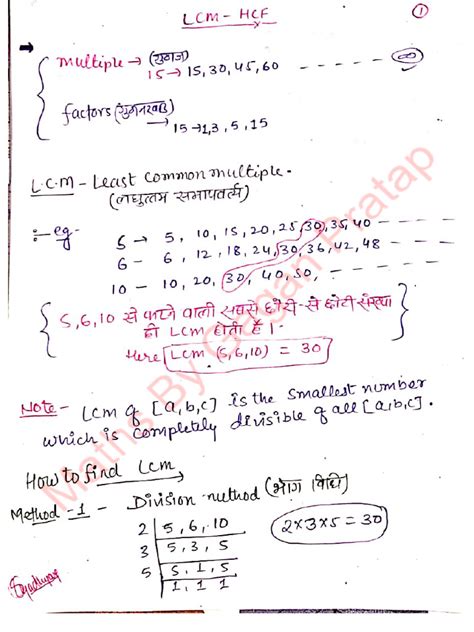 LCM - HCF
1
Multiple → (गुणज)
15 → 15, 30, 45, 60 - - - - - - ∞
factors (गुणनखण्ड)
→ 15 → 1, 3, 5, 15
L.C.M - Least common multiple.
(लघुत्तम समापवर्त्य)
eg
5 → 5, 10, 15, 20, 25, 30, 35, 40 - - - - -
6 - 6, 12, 18, 24, 30, 36, 42, 48 - - - - -
10 - 10, 20, 30, 40, 50, - - - - -
5, 6, 10 से कटने वाली सबसे छोटी-से छोटी संख्या
ही LCM होती है।
Here LCM (5,6,10) = 30
Note - LCM of [a,b,c] is the smallest number
which is completely divisible of all [a,b,c].
How to find LCM
Method - 1 - Division method (भाग विधि)
2 | 5, 6, 10
3 | 5, 3, 5
5 | 5, 1, 5
1, 1, 1
2×3×5 = 30
Maths By Gagan Pratap